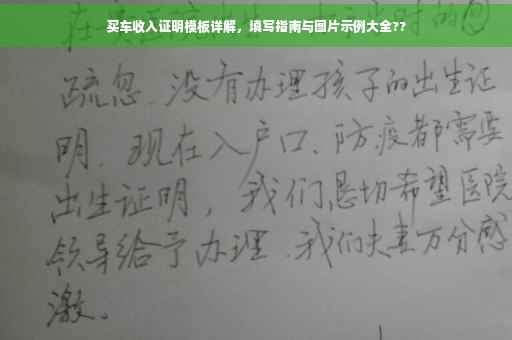 买车收入证明模板详解，填写指南与图片示例大全??
疏忽、没有办理孩子的出生证
明、现在入户口、防疫都需要
出生证明，我们恳切希望医院
领导给予办理、我们夫妻万分感
激。